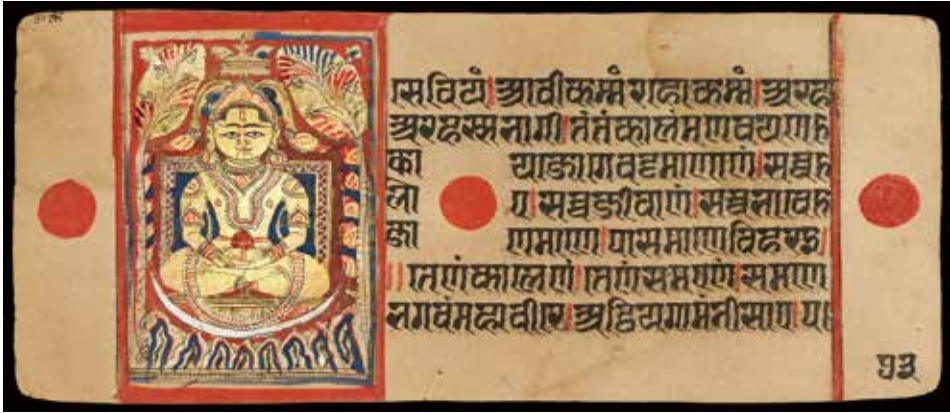 सेवियं।आवीकम्मंरहोकम्मं।अरहा
अरहस्सभागी।तंतंकालंमणवयण
का यजोगेवट्टमाणाणं।सव्व
लो ए।सव्वजीवाणं।सव्वभावे
जा णमाणे।पासमाणेविहरइ।
॥तेणंकालेणं।तेणंसमएणं।समणे
भगवंमहावीरे।अट्ठियगामंनीसाए।प
५३